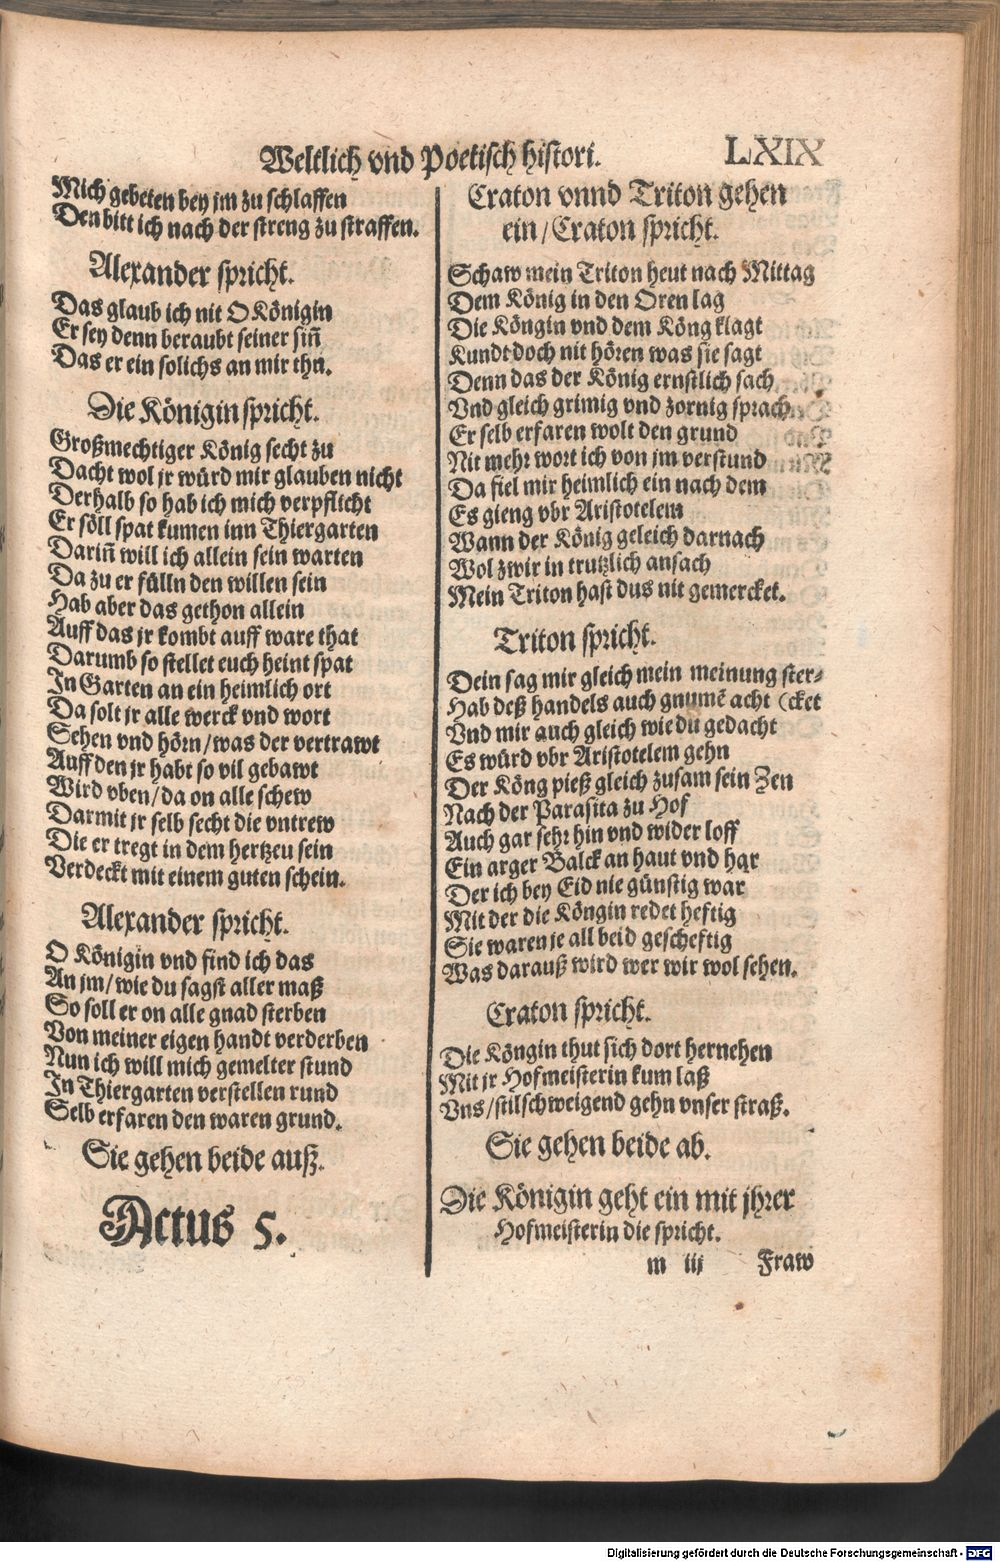 Weltlich vnd Poetisch histori.
LXIX
Mich gebeten bey jm zu schlaffen
Den bitt ich nach der streng zu straffen.
Alexander spricht.
Das glaub ich nit O Königin
Er sey denn beraubt seiner siñ
Das er ein solichs an mir thu.
Die Königin spricht.
Großmechtiger König secht zu
Dacht wol jr würd mir glauben nicht
Derhalb so hab ich mich verpflicht
Er söll spat kumen inn Thiergarten
Dariñ will ich allein sein warten
Da zu er fülln den willen sein
Hab aber das gethon allein
Auff das jr kombt auff ware that
Darumb so stellet euch heint spat
In Garten an ein heimlich ort
Da solt jr alle werck vnd wort
Sehen vnd hörn/was der vertrawt
Auff den jr habt so vil gebawt
Wird vben/da on alle schew
Darmit jr selb secht die vntrew
Die er tregt in dem hertzen sein
Verdeckt mit einem guten schein.
Alexander spricht.
O Königin vnd find ich das
An jm/wie du sagst aller maß
So soll er on alle gnad sterben
Von meiner eigen handt verderben
Nun ich will mich gemelter stund
In Thiergarten verstellen rund
Selb erfaren den waren grund.
Sie gehen beide auß.
Actus 5.
Craton vnnd Triton gehen
ein/Craton spricht.
Schaw mein Triton heut nach Mittag
Dem König in den Oren lag
Die Köngin vnd dem Köng klagt
Kundt doch nit hören was sie sagt
Denn das der König ernstlich sach
Vnd gleich grimig vnd zornig sprach
Er selb erfaren wolt den grund
Nit mehr wort ich von jm verstund
Da fiel mir heimlich ein nach dem
Es gieng vbr Aristotelem
Wann der König geleich darnach
Wol zwir in trutzlich ansach
Mein Triton hast dus nit gemercket.
Triton spricht.
Dein sag mir gleich mein meinung ster-
Hab deß handels auch gnumẽ acht (cket
Vnd mir auch gleich wie du gedacht
Es würd vbr Aristotelem gehn
Der Köng pieß gleich zusam sein Zen
Nach der Parasita zu Hof
Auch gar sehr hin vnd wider loff
Ein arger Balck an haut vnd har
Der ich bey Eid nie günstig war
Mit der die Köngin redet heftig
Sie waren je all beid gescheftig
Was darauß wird wer wir wol sehen.
Craton spricht.
Die Köngin thut sich dort hernehen
Mit jr Hofmeisterin kum laß
Vns/stilschweigend gehn vnser straß.
Sie gehen beide ab.
Die Königin geht ein mit jhrer
Hofmeisterin die spricht.
m iij Fraw
Digitalisierung gefördert durch die Deutsche Forschungsgemeinschaft - DFG